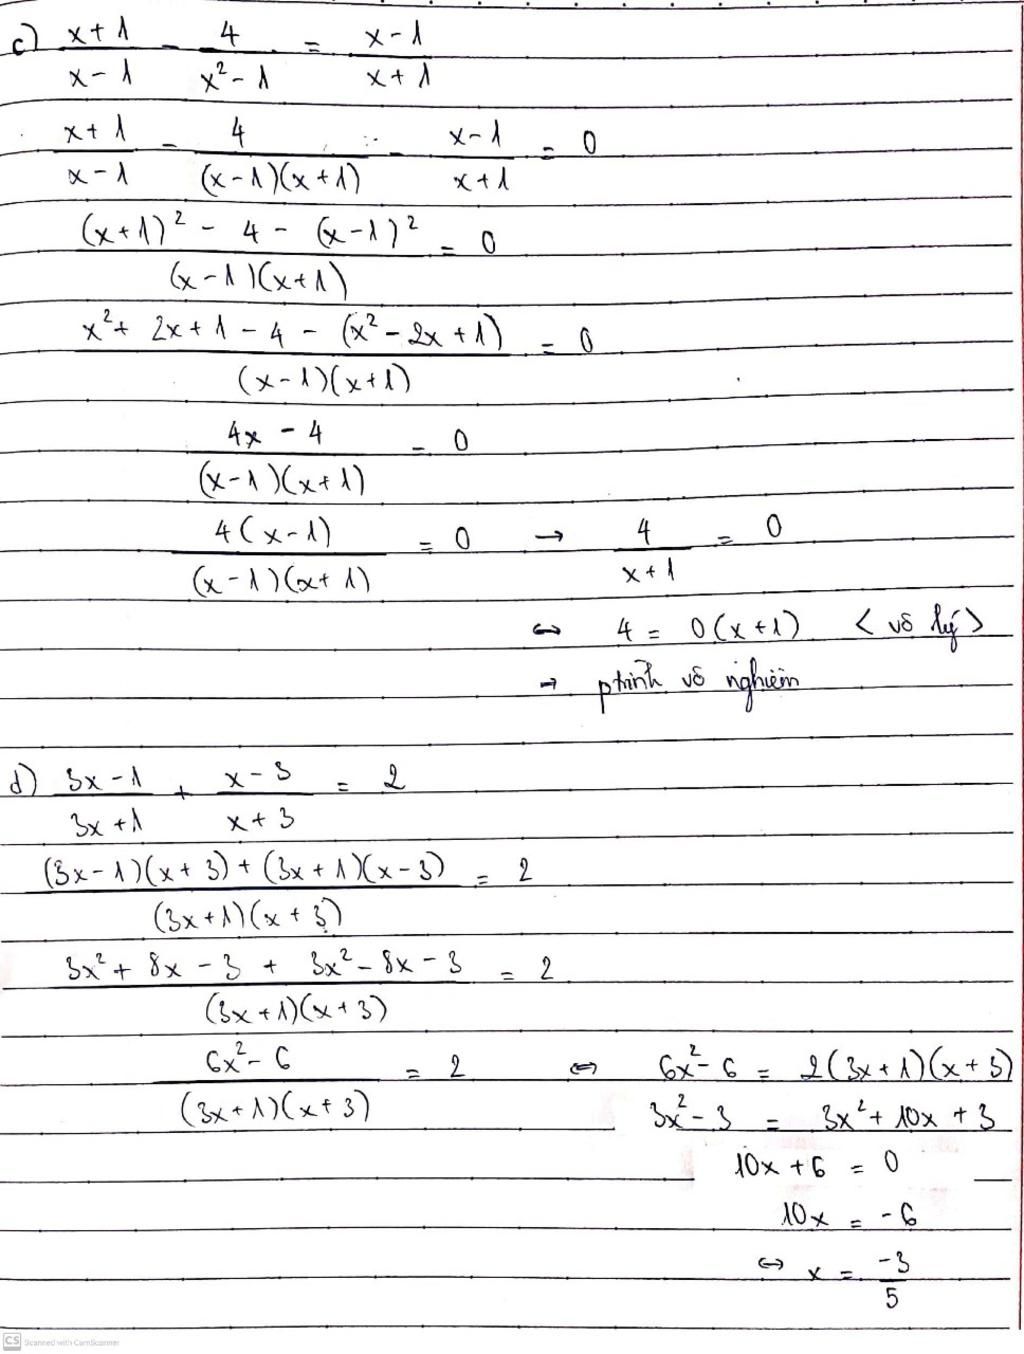 c) (x+1)/(x-1) - 4/(x²-1) = (x-1)/(x+1)
(x+1)/(x-1) - 4/((x-1)(x+1)) - (x-1)/(x+1) = 0
((x+1)² - 4 - (x-1)²)/((x-1)(x+1)) = 0
(x²+ 2x+1 - 4 - (x²-2x+1))/((x-1)(x+1)) = 0
(4x - 4)/((x-1)(x+1)) = 0
(4(x-1))/((x-1)(x+1)) = 0 → 4/(x+1) = 0
⇔ 4 = 0(x+1) <vô lý>
→ ptrình vô nghiệm
d) (3x-1)/(3x+1) + (x-3)/(x+3) = 2
((3x-1)(x+3)+(3x+1)(x-3))/((3x+1)(x+3)) = 2
(3x²+8x-3 + 3x²-8x-3)/((3x+1)(x+3)) = 2
(6x²-6)/((3x+1)(x+3)) = 2 ⇔ 6x²-6 = 2(3x+1)(x+3)
3x²-3 = 3x²+10x+3
10x+6 = 0
10x = -6
⇔ x = -3/5
CS Scanned with CamScanner